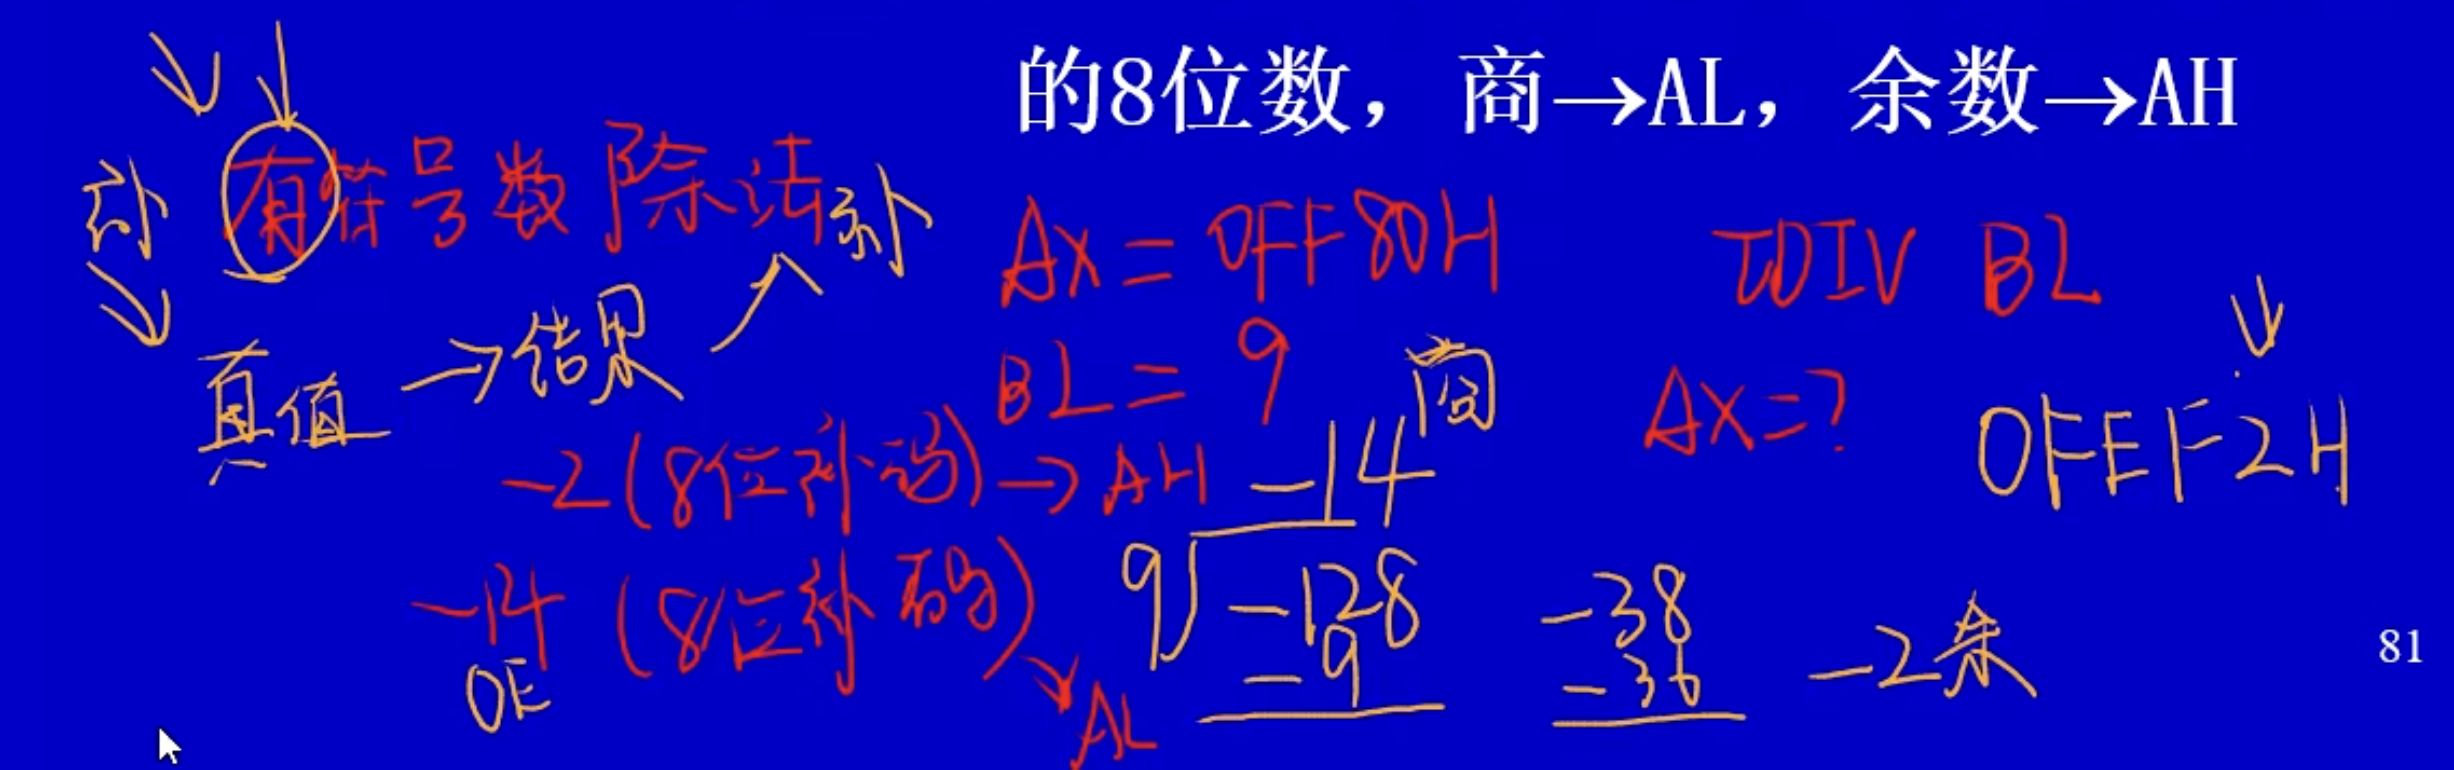 的8位数，商→AL，余数→AH
补 有符号数除法 补
AX=0FF80H IDIV BL
真值→结果
BL=9 商
AX=? 0FEF2H
-2(8位补码)→AH -14
-14(8位补码)
AL
9 -128 -38 -2余
-9 -36
0E
81